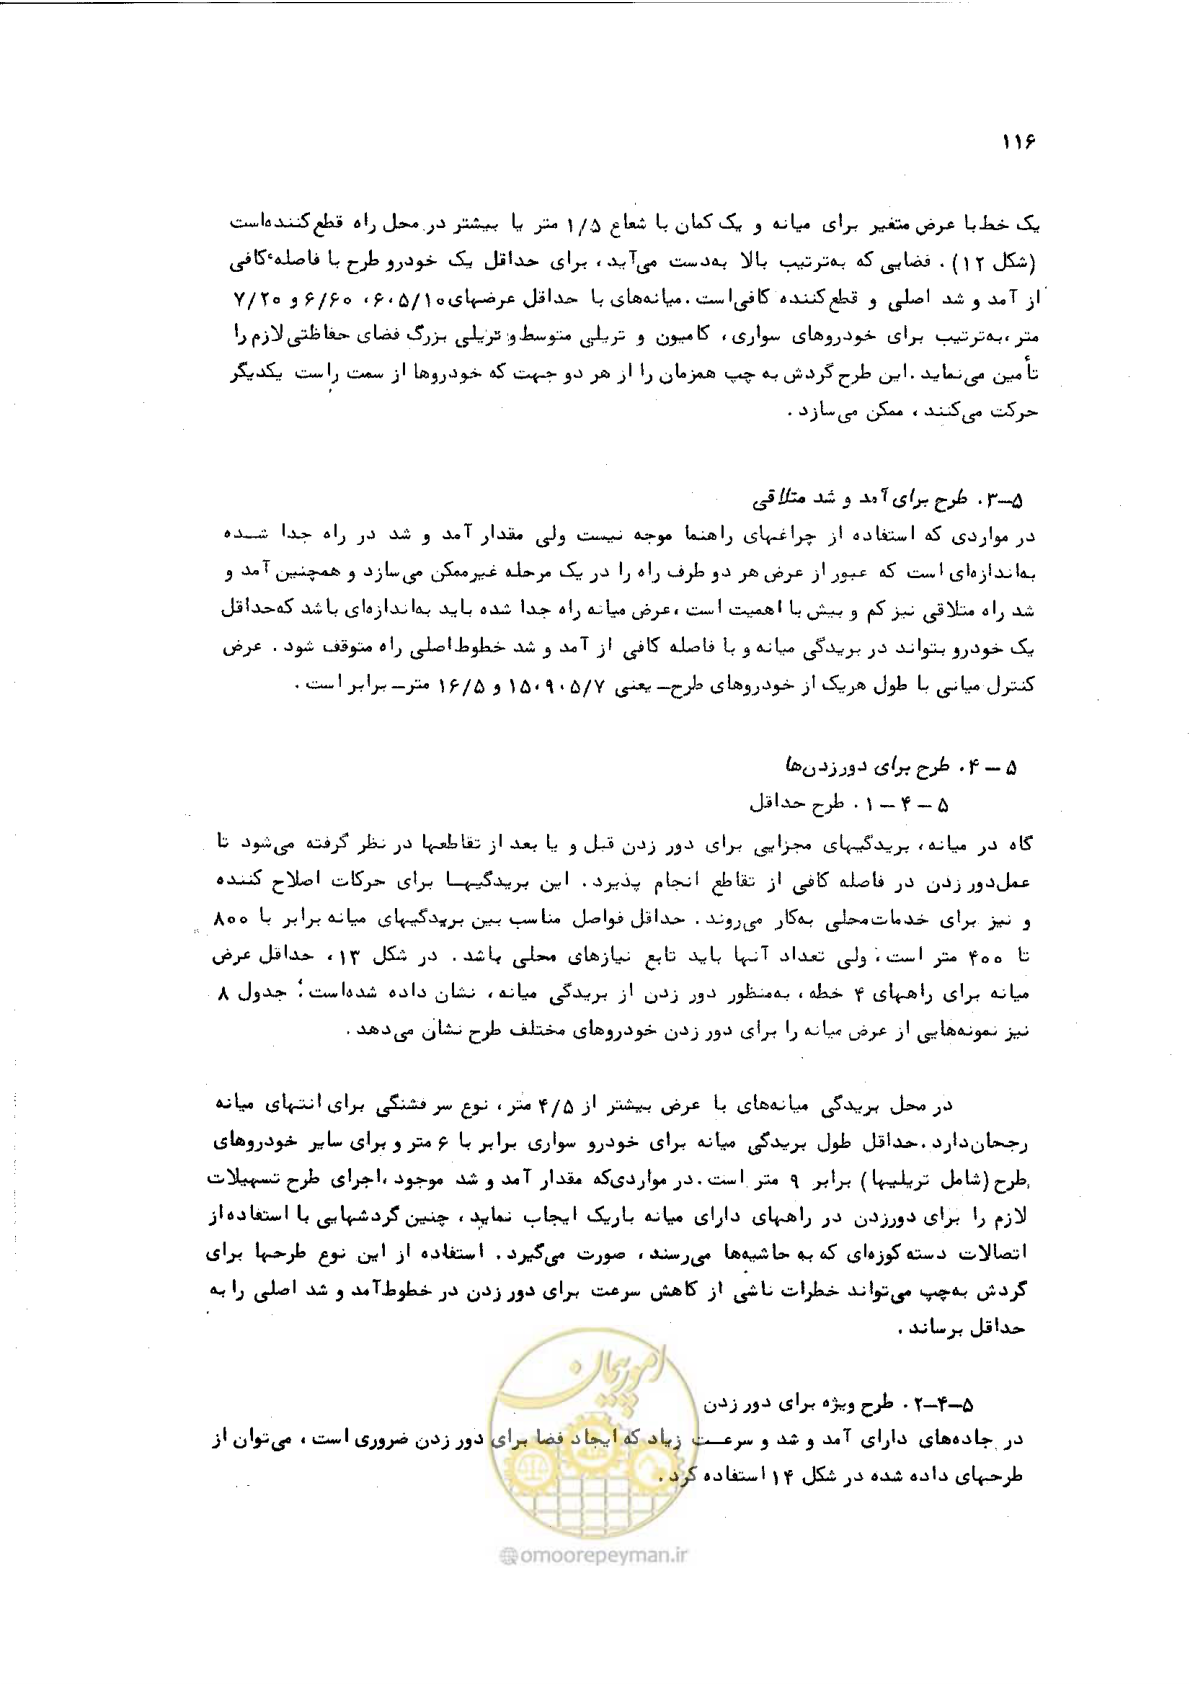 ۱۱۶
یک خط با عرض متغیر برای میانه و یک کمان با شعاع ۱/۵ متر یا بیشتر در محل راه قطع‌کننده‌است
(شکل ۱۲). فضایی که به‌ترتیب بالا به‌دست می‌آید، برای حداقل یک خودرو طرح با فاصله‌ٔ کافی
از آمد و شد اصلی و قطع‌کننده کافی‌است. میانه‌های با حداقل عرضهای ۵/۱۰، ۶، ۶/۶۰ و ۷/۲۰
متر، به‌ترتیب برای خودروهای سواری، کامیون و تریلی متوسط و تریلی بزرگ فضای حفاظتی لازم را
تأمین می‌نماید. این طرح گردش به چپ همزمان را از هر دو جهت که خودروها از سمت راست یکدیگر
حرکت می‌کنند، ممکن می‌سازد.
۵–۳. طرح برای آمد و شد متلاقی
در مواردی که استفاده از چراغهای راهنما موجه نیست ولی مقدار آمد و شد در راه جدا شده
به‌اندازه‌ای است که عبور از عرض هر دو طرف راه را در یک مرحله غیرممکن می‌سازد و همچنین آمد و
شد راه متلاقی نیز کم و بیش با اهمیت است، عرض میانه راه جدا شده باید به‌اندازه‌ای باشد که‌حداقل
یک خودرو بتواند در بریدگی میانه و با فاصله کافی از آمد و شد خطوط اصلی راه متوقف شود. عرض
کنترل میانی با طول هریک از خودروهای طرح– یعنی ۵/۷، ۹، ۱۵ و ۱۶/۵ متر– برابر است.
۵ – ۴. طرح برای دورزدن‌ها
۵ – ۴ – ۱. طرح حداقل
گاه در میانه، بریدگیهای مجزایی برای دور زدن قبل و یا بعد از تقاطعها در نظر گرفته می‌شود تا
عمل‌دور زدن در فاصله کافی از تقاطع انجام پذیرد. این بریدگیهـا برای حرکات اصلاح کننده
و نیز برای خدمات‌محلی به‌کار می‌روند. حداقل فواصل مناسب بین بریدگیهای میانه برابر با ۸۰۰
تا ۴۰۰ متر است، ولی تعداد آنها باید تابع نیازهای محلی باشد. در شکل ۱۳، حداقل عرض
میانه برای راههای ۴ خطه، به‌منظور دور زدن از بریدگی میانه، نشان داده شده‌است؛ جدول ۸
نیز نمونه‌هایی از عرض میانه را برای دور زدن خودروهای مختلف طرح نشان می‌دهد.
در محل بریدگی میانه‌های با عرض بیشتر از ۴/۵ متر، نوع سر فشنگی برای انتهای میانه
رجحان‌دارد. حداقل طول بریدگی میانه برای خودرو سواری برابر با ۶ متر و برای سایر خودروهای
طرح (شامل تریلیها) برابر ۹ متر است. در مواردی‌که مقدار آمد و شد موجود، اجرای طرح تسهیلات
لازم را برای دورزدن در راههای دارای میانه باریک ایجاب نماید، چنین گردشهایی با استفاده‌از
اتصالات دسته کوزه‌ای که به حاشیه‌ها می‌رسند، صورت می‌گیرد. استفاده از این نوع طرحها برای
گردش به‌چپ می‌تواند خطرات ناشی از کاهش سرعت برای دور زدن در خطوط‌آمد و شد اصلی را به
حداقل برساند.
۵–۴–۲. طرح ویژه برای دور زدن
در جاده‌های دارای آمد و شد و سرعـت زیاد که ایجاد فضا برای دور زدن ضروری است، می‌توان از
طرحهای داده شده در شکل ۱۴ استفاده کرد.
امور پیمان
@omoorepeyman.ir